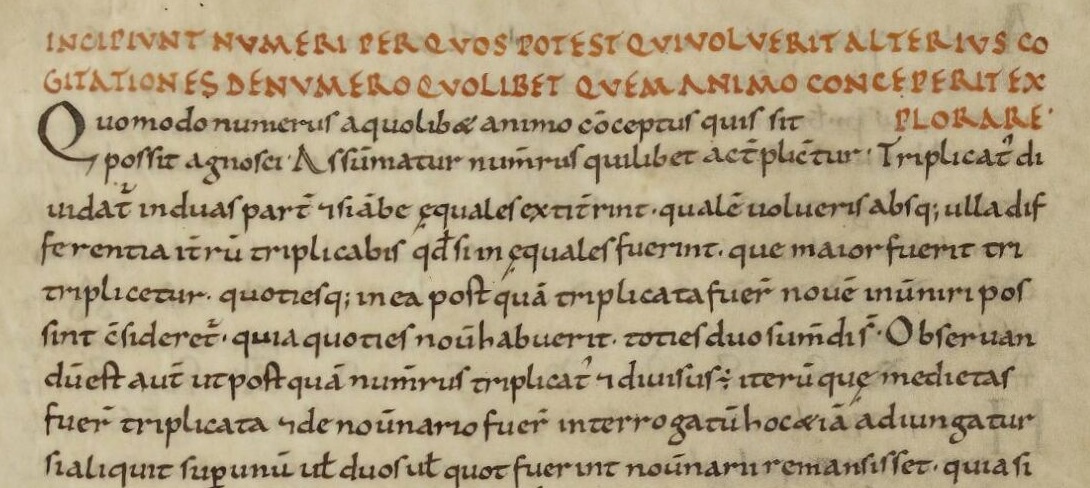 INCIPIVNT NVMERI PER QVOS POTEST QVI VOLVERIT ALTERIVS CO
GITATIONES DE NVMERO QVOLIBET QVEM ANIMO CONCEPERIT EX
PLORARE·
Quomodo numerus a quolib& animo cōceptus quis sit
possit agnosci· Assūmatur num̄rus quilibet act̄plic̄tur· Triplicat᷒ di
uidat᷒ in duas part̄ ⁊ si ābę ęquales extit̄rint· qualē uolueris absq; ulla dif
ferentia it̄rū triplicabis qđ si inęquales fuerint· que maior fuerit tri
triplicetur· quotiesq; in ea post quā triplicata fuer̄ nouē inūniri pos
sint c̄sideret᷒· quia quoties noūh habuerit· toties duo sum̄di s̄· Obseruan
dū est aut̄ ut post quā num̄rus triplicat᷒ ⁊ diuisus ÷ iterū quę medietas
fuer̄ triplicata ⁊ de noūnario fuer̄ interrogatū hoc &iā adiungatur
si aliquit suꝑ unū uł duos uł quot fuerint noūnarii remansisset· quia si